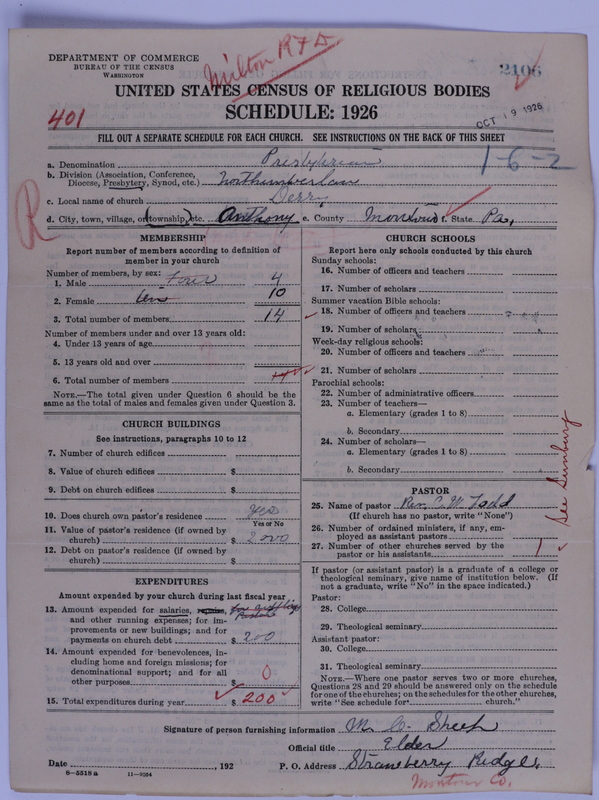 Milton RFD
DEPARTMENT OF COMMERCE
BUREAU OF THE CENSUS
WASHINGTON
2106
UNITED STATES CENSUS OF RELIGIOUS BODIES
401
SCHEDULE: 1926
OCT 19 1926
FILL OUT A SEPARATE SCHEDULE FOR EACH CHURCH. SEE INSTRUCTIONS ON THE BACK OF THIS SHEET
1-6-2
a. Denomination Presbyterian
b. Division (Association, Conference,
Diocese, Presbytery, Synod, etc.) Northumberlan
c. Local name of church Derry
R
d. City, town, village, or (township,) etc. Anthony e. County Montour f. State Pa.
MEMBERSHIP
Report number of members according to definition of
member in your church
Number of members, by sex:
1. Male Four 4
2. Female ten 10
3. Total number of members 14
Number of members under and over 13 years old:
4. Under 13 years of age
5. 13 years old and over
6. Total number of members
NOTE.—The total given under Question 6 should be the
same as the total of males and females given under Question 3.
CHURCH BUILDINGS
See instructions, paragraphs 10 to 12
7. Number of church edifices
8. Value of church edifices $
9. Debt on church edifices $
10. Does church own pastor's residence Yes
Yes or No
11. Value of pastor's residence (if owned by
church) $ 2000
12. Debt on pastor's residence (if owned by
church) $
EXPENDITURES
Amount expended by your church during last fiscal year
13. Amount expended for salaries, repairs,
and other running expenses; for im-
provements or new buildings; and for
payments on church debt $ 200
14. Amount expended for benevolences, in-
cluding home and foreign missions; for
denominational support; and for all
other purposes $ 0
15. Total expenditures during year $ 200
CHURCH SCHOOLS
Report here only schools conducted by this church
Sunday schools:
16. Number of officers and teachers
17. Number of scholars
Summer vacation Bible schools:
18. Number of officers and teachers
19. Number of scholars
Week-day religious schools:
20. Number of officers and teachers
21. Number of scholars
Parochial schools:
22. Number of administrative officers
23. Number of teachers—
a. Elementary (grades 1 to 8)
b. Secondary
24. Number of scholars—
a. Elementary (grades 1 to 8)
b. Secondary
See Sunbury
PASTOR
25. Name of pastor Rev. C. W. Todd
(If church has no pastor, write "None")
26. Number of ordained ministers, if any, em-
ployed as assistant pastors
27. Number of other churches served by the
pastor or his assistants 1
If pastor (or assistant pastor) is a graduate of a college or
theological seminary, give name of institution below. (If
not a graduate, write "No" in the space indicated.)
Pastor:
28. College
29. Theological seminary
Assistant pastor:
30. College
31. Theological seminary
NOTE.—Where one pastor serves two or more churches,
Questions 28 and 29 should be answered only on the schedule
for one of the churches; on the schedules for the other churches,
write "See schedule for church."
Signature of person furnishing information M. C. Sheep
Official title Elder
Date , 192
P. O. Address Straneberry Ridge,
8—5518 a 11—9284
Montour Co.